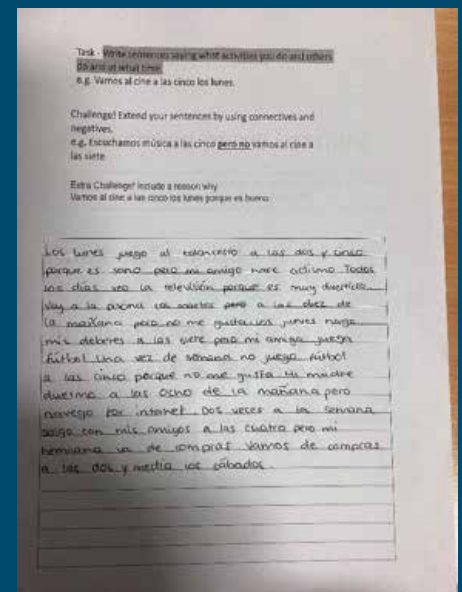 Task - Write sentences saying what activities you do and others
do and at what time.
e.g. Vamos al cine a las cinco los lunes.
Challenge! Extend your sentences by using connectives and
negatives.
e.g. Escuchamos música a las cinco pero no vamos al cine a
las siete
Extra Challenge! Include a reason why
Vamos al cine a las cinco los lunes porque es bueno
Los lunes juego al baloncesto a las dos y
porque es sano pero mi amigo hace ciclismo Todos
los dias veo la televisión porque es muy divertido
Voy a la piscina los martes pero a las diez de
la mañana pero no me gusta Los jueves hago
mis deberes a las siete pero mi amiga juega
fútbol Una vez de semana no juego fútbol
a las cinco porque no me gusta Mi madre
duerme a las ocho de la mañana pero
navego por internet Dos veces a la semana
salgo con mis amigos a las cuatro pero mi
hermana va de compras Vamos de compras
a las dos y media los sábados.